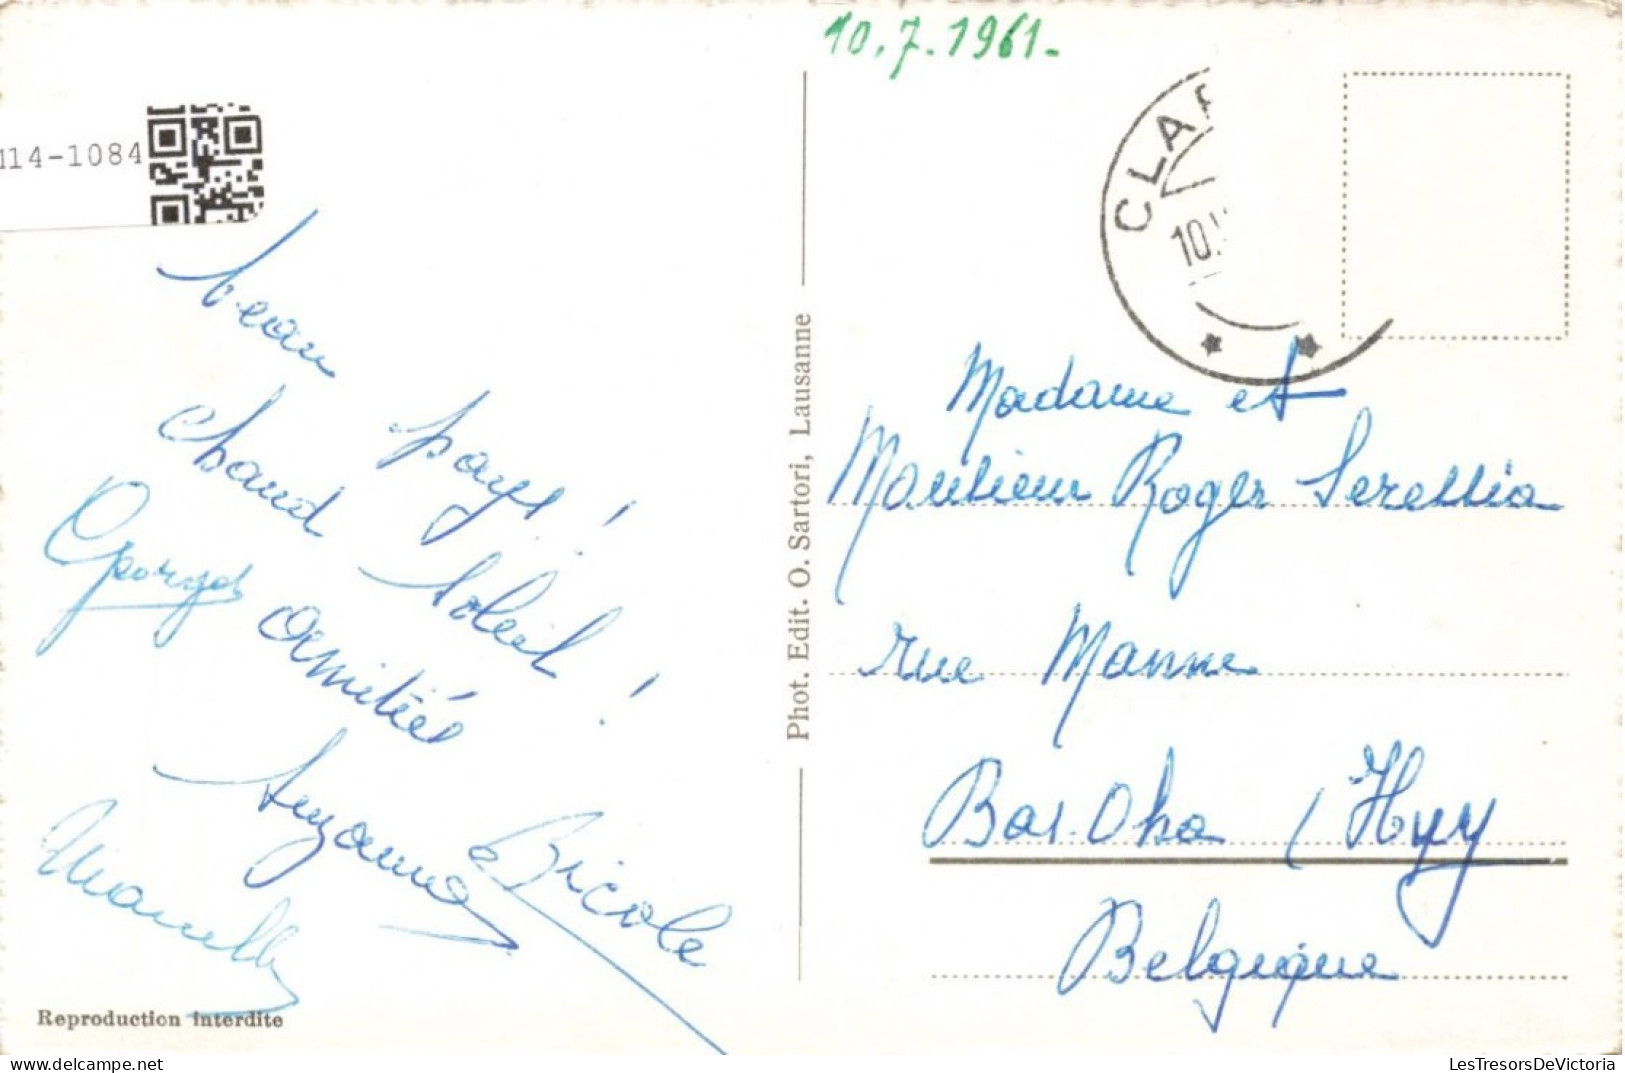 10.7.1961.
114-1084
beau pays !
chaud soleil !
amitiés
Georges
Suzanne
Nicole
Marcelle
Reproduction interdite
Phot. Edit. O. Sartori, Lausanne
CLAR
10.V
Madame et
Monsieur Roger
rue
Bas-Oha (Huy
Belgique
LesTresorsDeVictoria